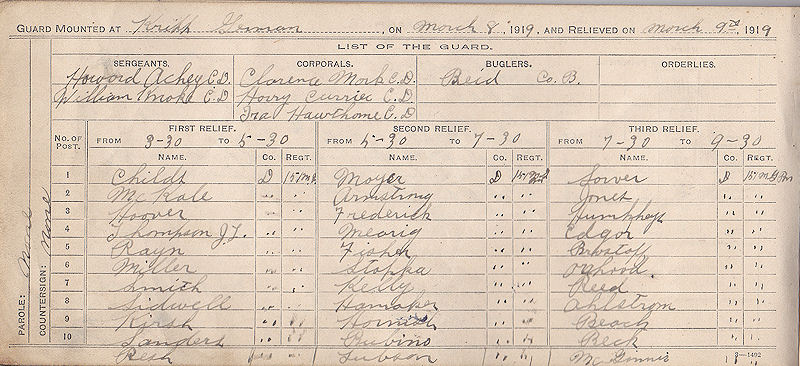 GUARD MOUNTED AT Kripp German, ON March 8, 1919, AND RELIEVED ON March 9th, 1919
LIST OF THE GUARD.
SERGEANTS. CORPORALS. BUGLERS. ORDERLIES.
Howard Achey C.D. Clarence Mock C.D. Beid Co. B.
William Moke C.D. Harry Currier C.D.
Ira Hawthorne C.D.
No. OF POST. FIRST RELIEF. SECOND RELIEF. THIRD RELIEF.
FROM 3-30 TO 5-30 FROM 5-30 TO 7-30 FROM 7-30 TO 9-30
NAME. Co. REGT. NAME. Co. REGT. NAME. Co. REGT.
1 Childs D 151 M.G. Moyer D 151 M.G. Sower D 151 M.G. Bn
2 McKale " " Armstrong " " Jones " "
3 Hoover " " Frederick " " Humphreys " "
4 Thompson J.J. " " Mearig " " Edgar " "
5 Rayn " " Fisher " " "  "
6 Miller " " Stoppa " " " "
7 Smith " " Kelly " " Reed " "
8 Sidwell " " Hamaker " " Ahlstrom " "
9 Kirsh " " " " Beach " "
10 Sanders " " Rubino " " Beck " "
Resh " " Gibson " " McGinnis " "
PAROLE: None
COUNTERSIGN: None
3—1402